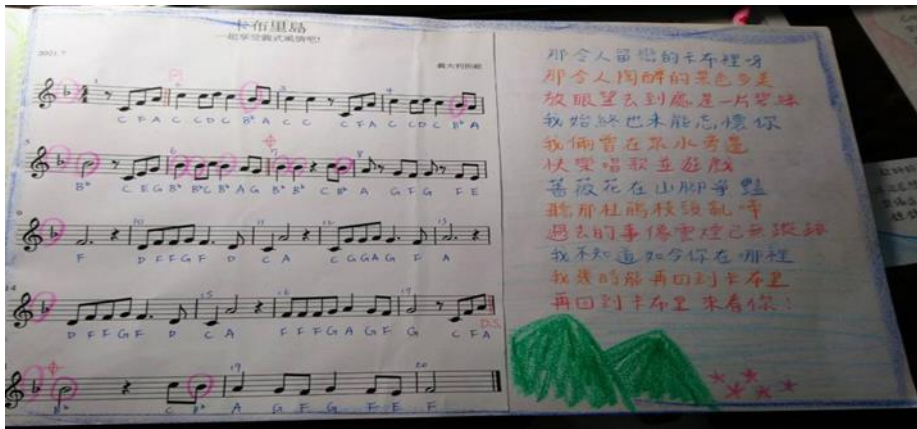 卡布里島
一起享受義式風情吧!
2021.7
義大利民謠
C F A C C D C B♭ A C C C F A C C D C B♭ A
B♭ C E G B♭ B♭ C B♭ A G B♭ B♭ C B♭ A G F G F E
F D F F G F D C A C G G A G F A
D F F G F D C A F F F G A G F G C F A
D.S.
B♭ C B♭ A G F G F E F
那令人留戀的卡布裡呀
那令人陶醉的景色多美
放眼望去到處是一片碧綠
我始終也未能忘懷你
我倆曾在泉水旁邊
快樂唱歌並遊戲
薔薇花在山腳爭豔
聽那杜鵑枝頭亂啼
過去的事像雲煙已無蹤跡
我不知道如今你在哪裡
我幾時能再回到卡布里
再回到卡布里來看你!